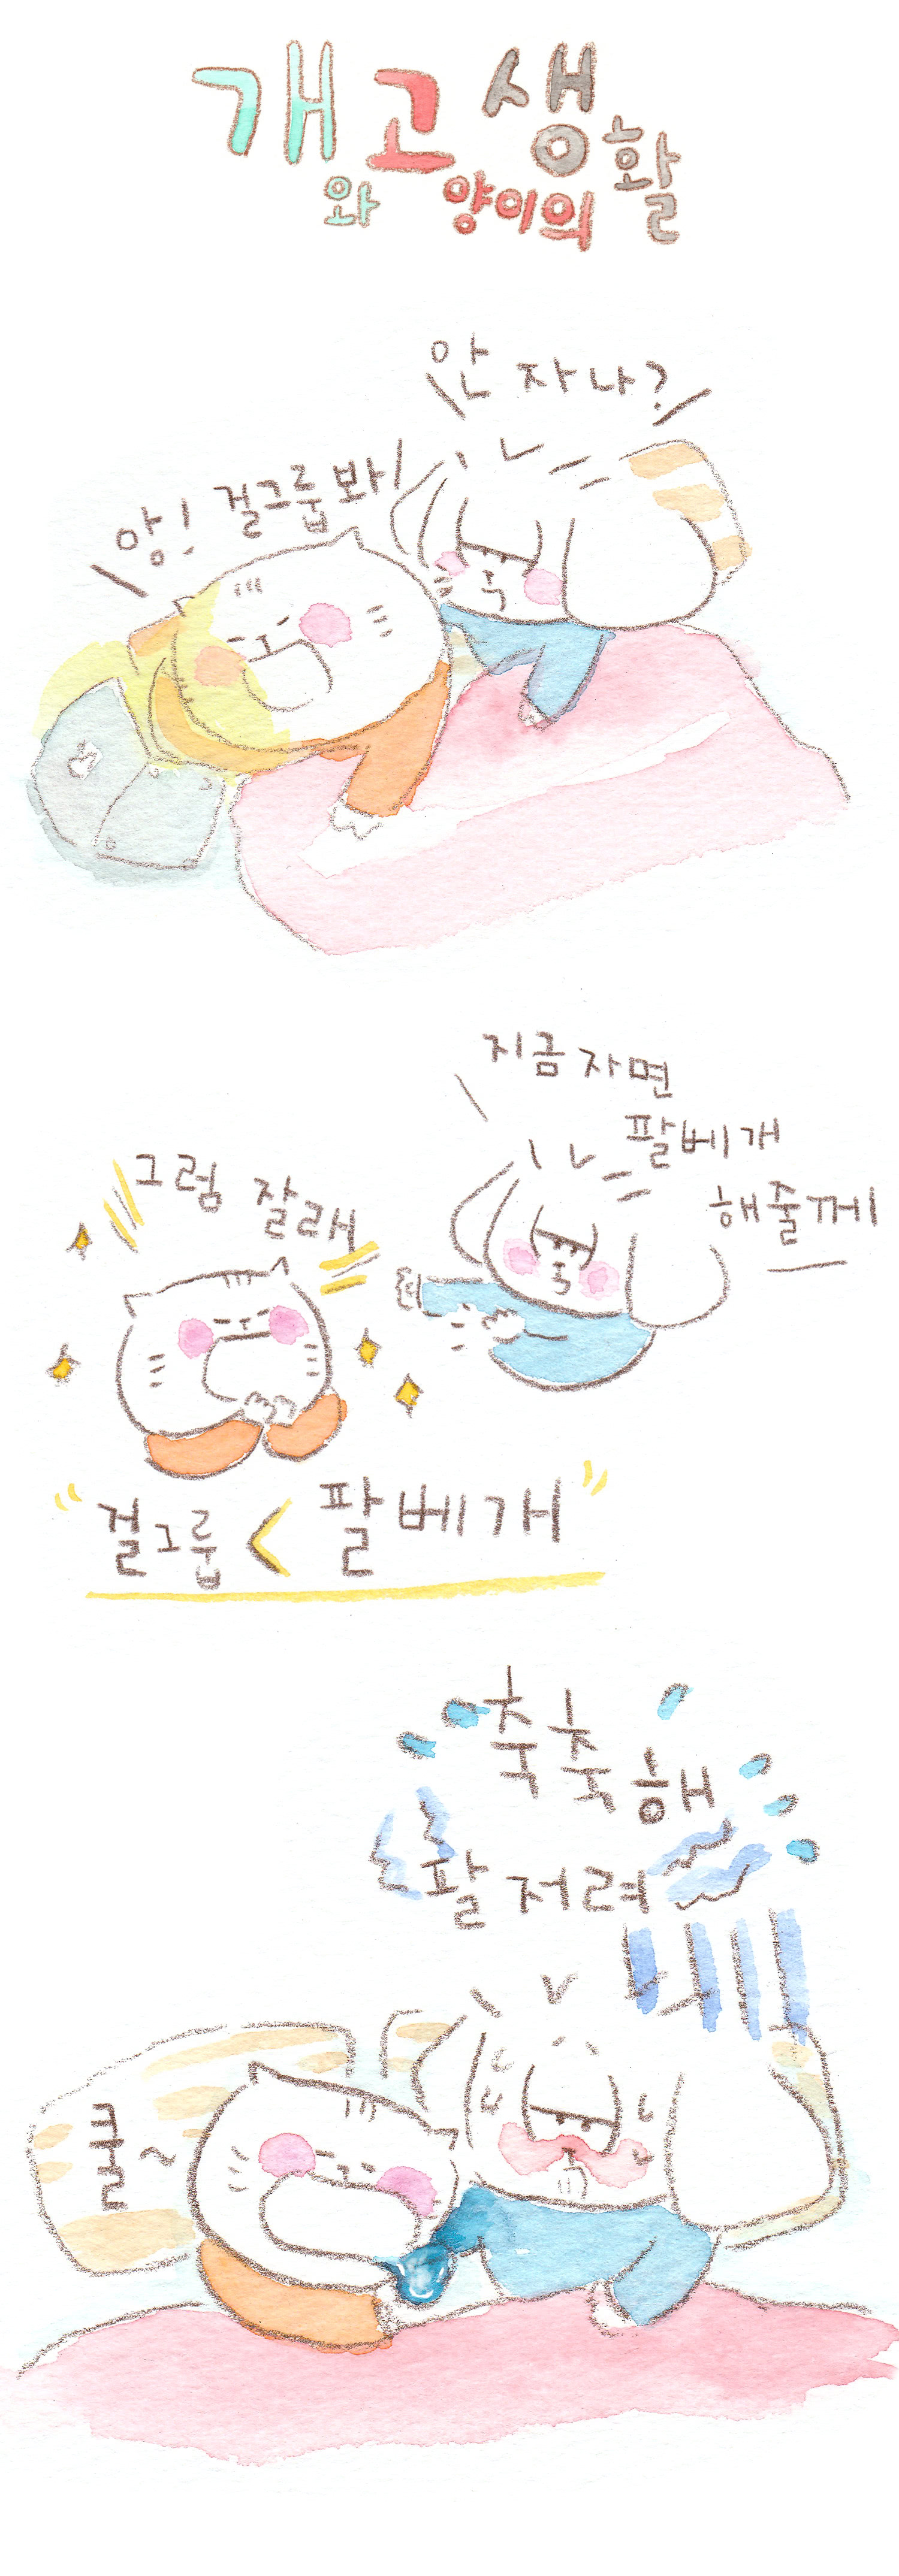 개와 고양이의 생활
안 자나?
앙! 걸그룹 봐!
지금 자면
팔베개
해줄께
그럼 잘래
걸그룹 < 팔베개
축축해
팔 저려
쿨~